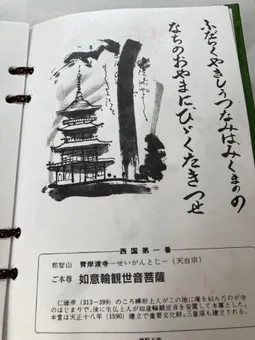 ふだらくやきしうつなみはみくまのの
なちのおやまにひゞくたきつせ
西国第一番
那智山 青岸渡寺−せいがんとじ−（天台宗）
ご本尊 如意輪観世音菩薩
仁徳帝（313〜399）のころ裸形上人がこの地に庵を結んだのが寺
のはじまりで、後に生仏上人が如意輪観世音を安置して本尊とした。
本堂は天正十八年（1590）建立で重要文化財。三重塔も建立される。